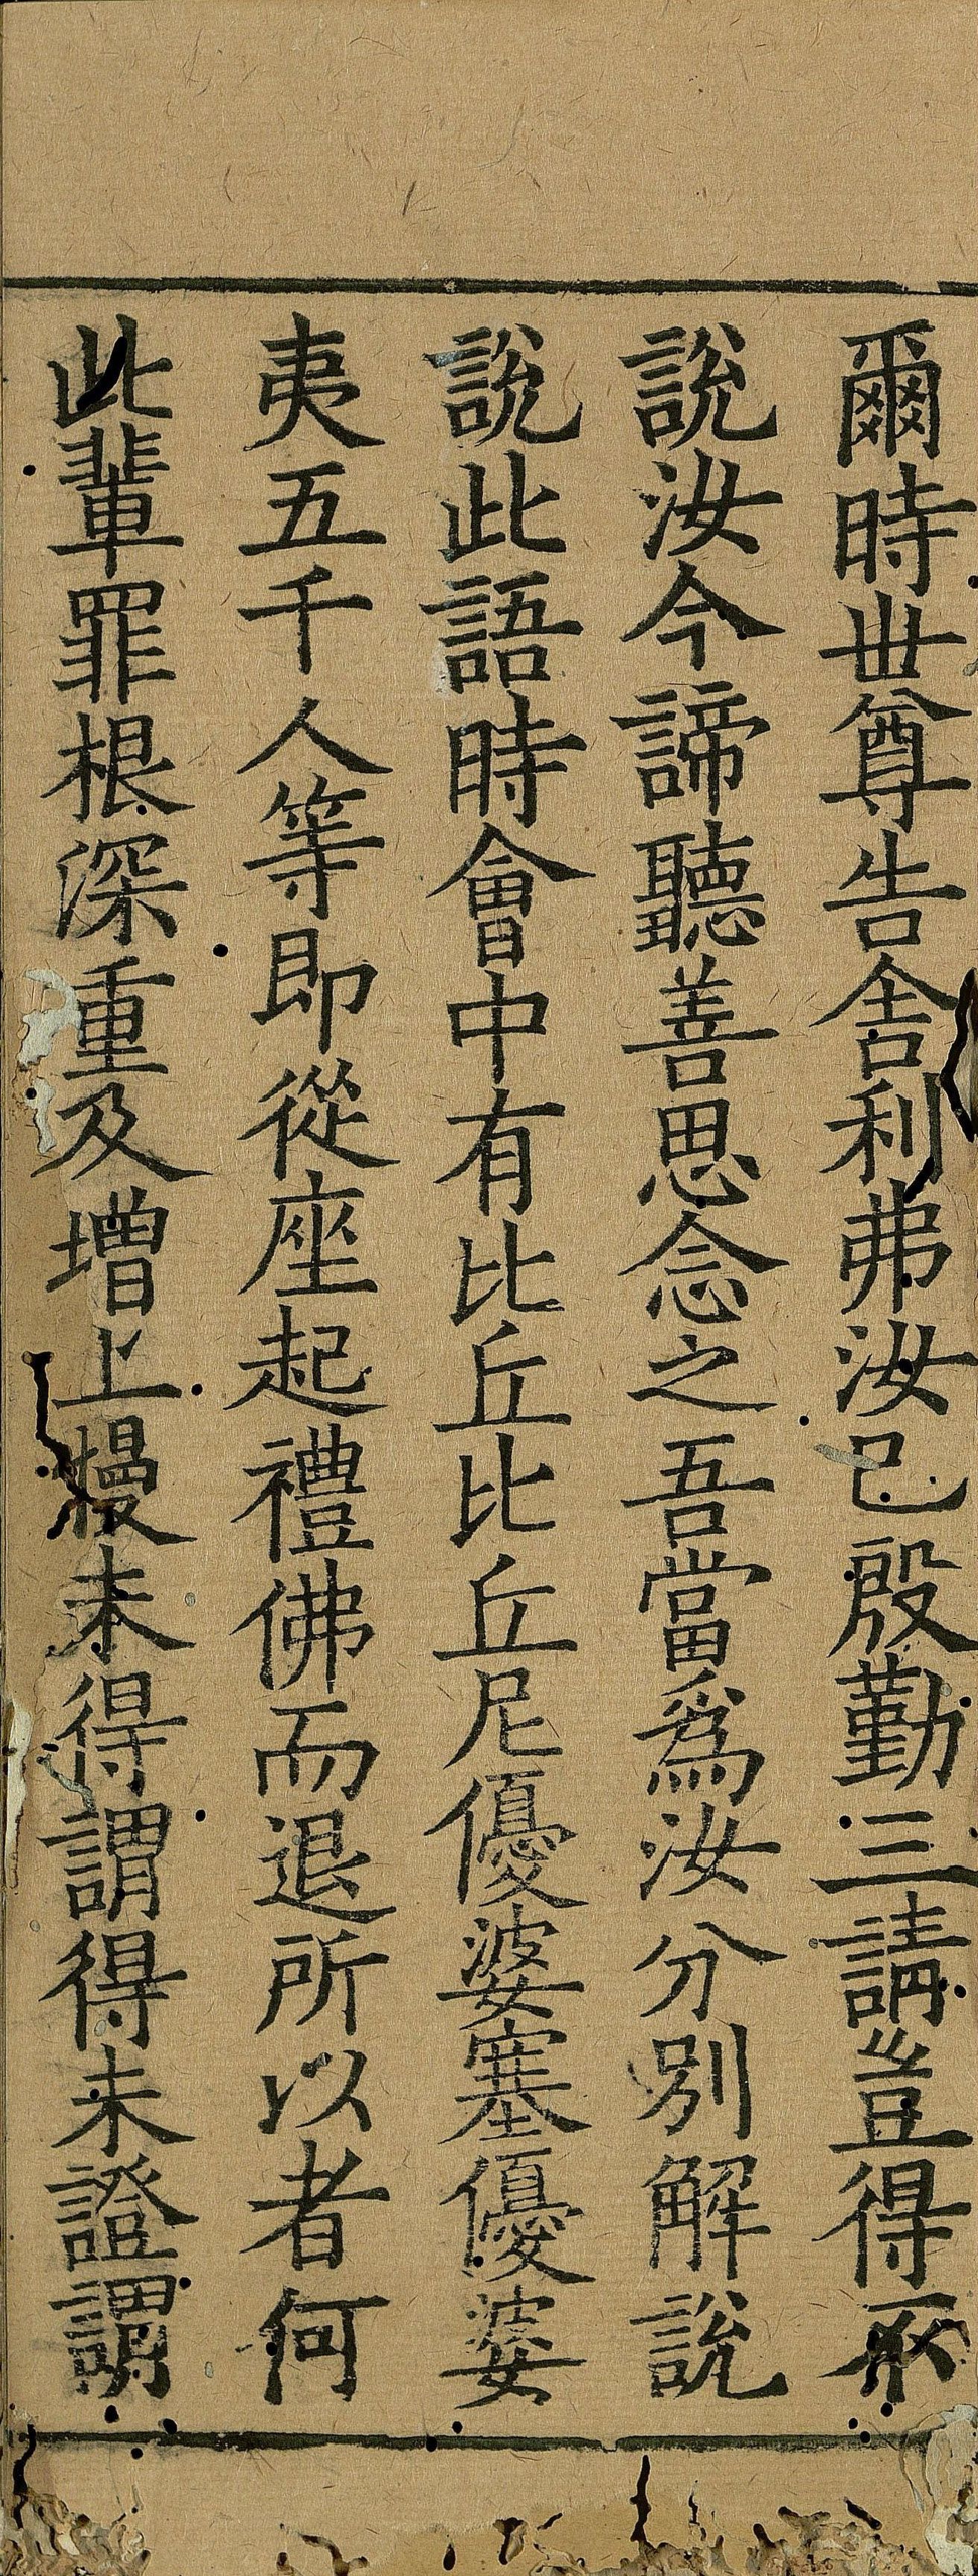 爾時世尊告舎利弗汝已殷勤三請豈得不
說汝今諦聽善思念之吾當爲汝分別解說
說此語時會中有比丘比丘尼優婆塞優婆
夷五千人等即從座起禮佛而退所以者何
此輩罪根深重及增上慢未得謂得未證謂